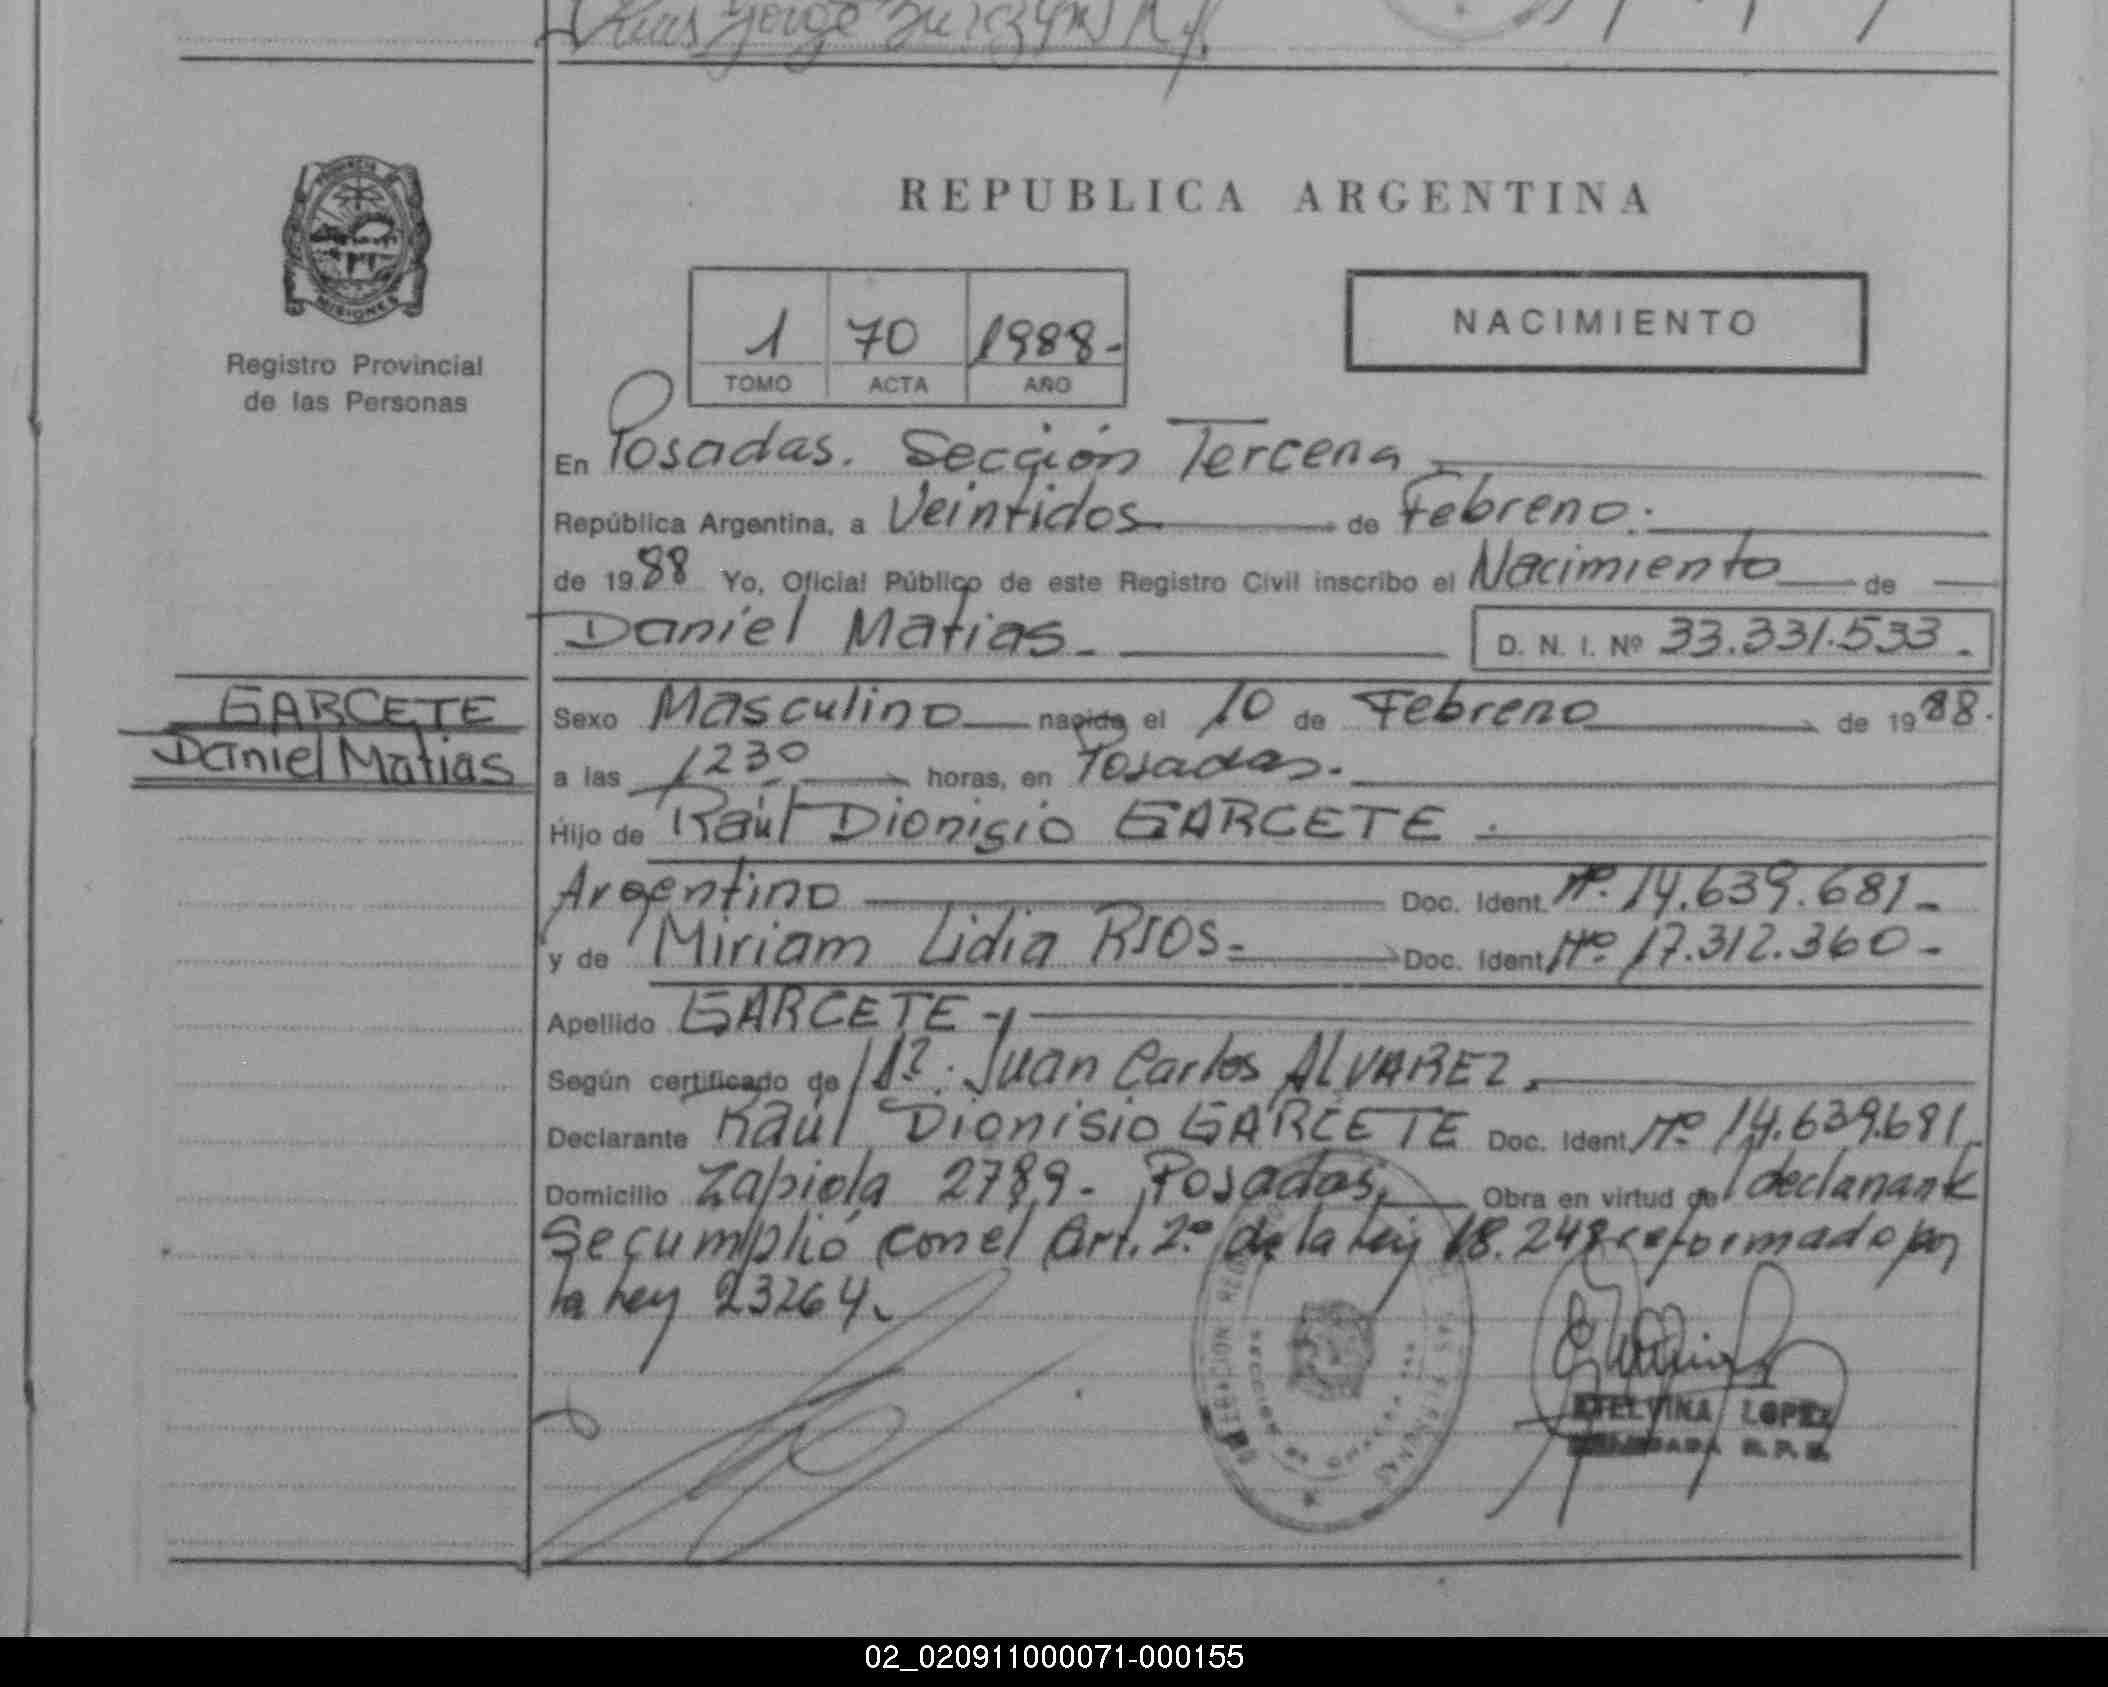 REPUBLICA ARGENTINA
PROVINCIA DE
MISIONES
Registro Provincial
de las Personas
1 70 1988-
TOMO ACTA AÑO
NACIMIENTO
En Posadas. Sección Tercera
República Argentina, a Veintidos de Febrero.
de 1988 Yo, Oficial Público de este Registro Civil inscribo el Nacimiento de
Daniel Matias.
D. N. I. Nº 33.331.533.
GARCETE
Daniel Matias
Sexo Masculino nacido el 10 de Febrero de 1988.
a las 1230 horas, en Posadas.
Hijo de Raúl Dionisio GARCETE.
Argentino Doc. Ident. Nº. 14.639.681-
y de Miriam Lidia RIOS- Doc. Ident Nº 17.312.360-
Apellido GARCETE-
Según certificado de Juan Carlos ALVAREZ.
Declarante Raúl Dionisio GARCETE Doc. Ident Nº 14.639.681
Domicilio Zapiola 2789- Posadas, Obra en virtud de declarante
Se cumplió con el Art. 2º de la Ley 18.248 reformado por
la Ley 23264.
SECCION
LOPEZ
02_020911000071-000155